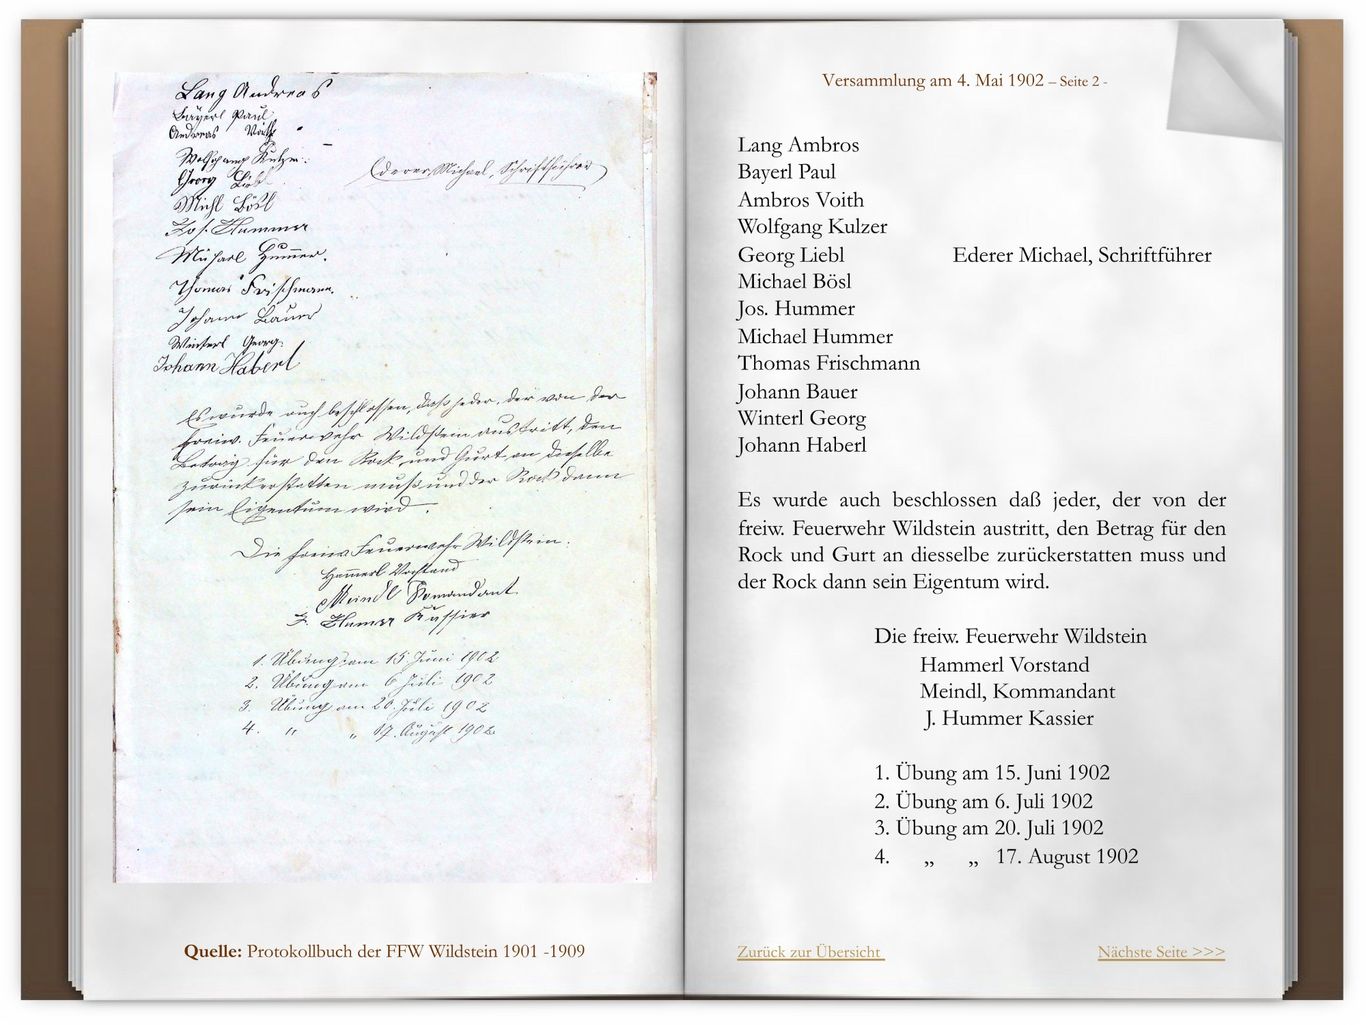 Lang Andreas
Bayerl Paul
Andreas Voith
Wolfgang Kulzer.
Georg Liebl
Ederer Michael, Schriftführer
Michl Bösl
Jos. Hummer
Michael Hummer.
Thomas Frischmann.
Johann Bauer
Winterl Georg.
Johann Haberl
Es wurde auch beschlossen, daß jeder, der von der
freiw. Feuerwehr Wildstein austritt, den
Betrag für den Rock und Gurt an dieselbe
zurückerstatten muß und der Rock dann
sein Eigentum wird.
Die freiw. Feuerwehr Wildstein.
Hammerl Vorstand
Meindl Komandant
J. Humer Kassier
1. Übung am 15. Juni 1902
2. Übung am 6 Juli 1902
3. Übung am 20. Juli 1902
4. " " 17. August 1902
Quelle: Protokollbuch der FFW Wildstein 1901 -1909
Versammlung am 4. Mai 1902 – Seite 2 -
Lang Ambros
Bayerl Paul
Ambros Voith
Wolfgang Kulzer
Georg Liebl Ederer Michael, Schriftführer
Michael Bösl
Jos. Hummer
Michael Hummer
Thomas Frischmann
Johann Bauer
Winterl Georg
Johann Haberl
Es wurde auch beschlossen daß jeder, der von der
freiw. Feuerwehr Wildstein austritt, den Betrag für den
Rock und Gurt an diesselbe zurückerstatten muss und
der Rock dann sein Eigentum wird.
Die freiw. Feuerwehr Wildstein
Hammerl Vorstand
Meindl, Kommandant
J. Hummer Kassier
1. Übung am 15. Juni 1902
2. Übung am 6. Juli 1902
3. Übung am 20. Juli 1902
4. „ „ 17. August 1902
Zurück zur Übersicht
Nächste Seite >>>